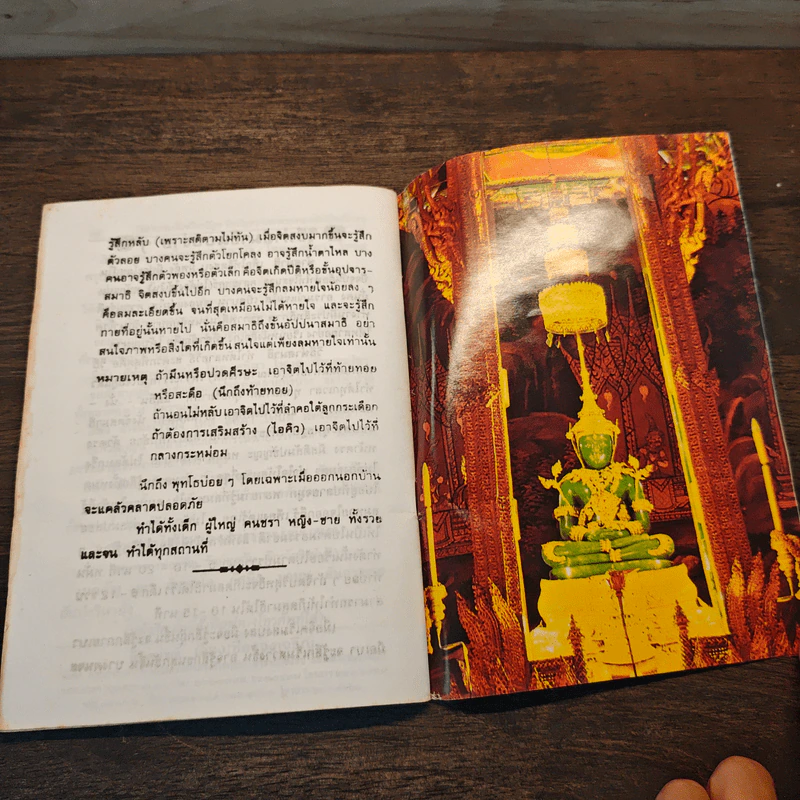 รู้สึกหลับ (เพราะสติตามไม่ทัน) เมื่อจิตสงบมากขึ้นจะรู้สึก
ตัวลอย บางคนจะรู้สึกตัวโยกโคลง อาจรู้สึกน้ำตาไหล บาง
คนอาจรู้สึกตัวพองหรือตัวเล็ก คือจิตเกิดปีติหรือขั้นอุปจาร-
สมาธิ จิตสงบขึ้นไปอีก บางคนจะรู้สึกลมหายใจน้อยลง ๆ
คือลมละเอียดขึ้น จนที่สุดเหมือนไม่ได้หายใจ และจะรู้สึก
กายที่อยู่นั้นหายไป นั่นคือสมาธิถึงขั้นอัปปนาสมาธิ อย่า
สนใจภาพหรือสิ่งใดที่เกิดขึ้น สนใจแต่เพียงลมหายใจเท่านั้น
หมายเหตุ ถ้ามึนหรือปวดศีรษะ เอาจิตไปไว้ที่ท้ายทอย
หรือสะดือ (นึกถึงท้ายทอย)
ถ้านอนไม่หลับเอาจิตไปไว้ที่ลำคอใต้ลูกกระเดือก
ถ้าต้องการเสริมสร้าง (ไอคิว) เอาจิตไปไว้ที่
กลางกระหม่อม
นึกถึง พุทโธบ่อย ๆ โดยเฉพาะเมื่อออกนอกบ้าน
จะแคล้วคลาดปลอดภัย
ทำได้ทั้งเด็ก ผู้ใหญ่ คนชรา หญิง-ชาย ทั้งรวย
และจน ทำได้ทุกสถานที่